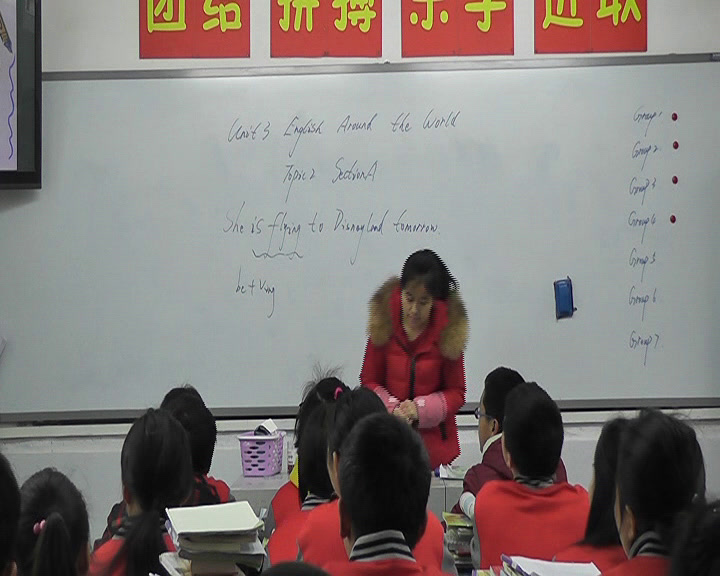 团结 拼搏 乐学 进取
Unit 3 English Around the World
Topic 2 Section A
She is flying to Disneyland tomorrow.
be + Ving
Group 1
Group 2
Group 3
Group 4
Group 5
Group 6
Group 7